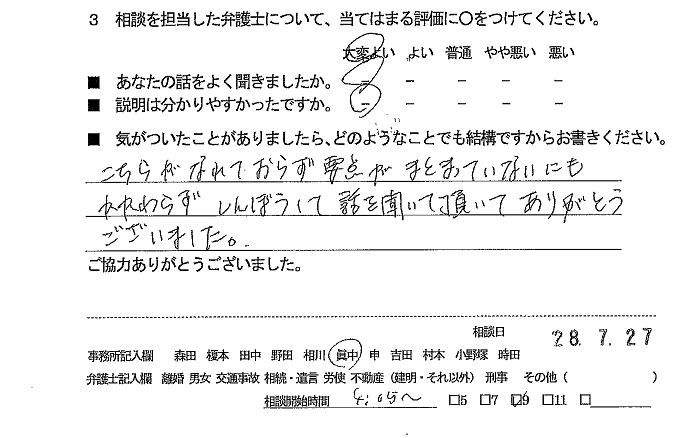 3 相談を担当した弁護士について、当てはまる評価に〇をつけてください。
大変よい よい 普通 やや悪い 悪い
■ あなたの話をよく聞きましたか。 － － － － －
■ 説明は分かりやすかったですか。 － － － － －
■ 気がついたことがありましたら、どのようなことでも結構ですからお書きください。
こちらがなれておらず要点がまとまっていないにも
かかわらず しんぼうして話を聞いて頂いてありがとう
ございました。
ご協力ありがとうございました。
相談日 28.7.27
事務所記入欄 森田 榎本 田中 野田 相川 眞中 申 吉田 村本 小野塚 時田
弁護士記入欄 離婚 男女 交通事故 相続・遺言 労使 不動産（建明・それ以外） 刑事 その他（ ）
相談開始時間 4:05〜 □5 □7 □9 □11 □